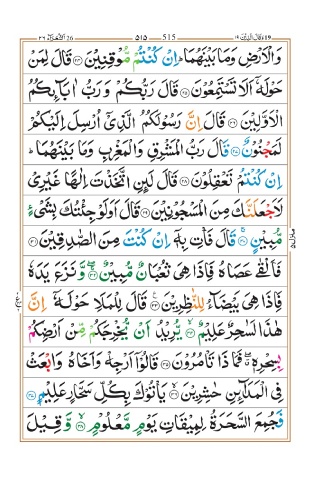 وقال الذین ۱۹ 515 ۵۱۵ الشعرآء 26
وَالْاَرْضِ وَمَا بَيْنَهُمَا ؕ اِنْ كُنْتُمْ مُّوْقِنِيْنَ ﴿۲۴﴾ قَالَ لِمَنْ
حَوْلَهٗۤ اَلَا تَسْتَمِعُوْنَ ﴿۲۵﴾ قَالَ رَبُّكُمْ وَرَبُّ اٰبَآئِكُمُ
الْاَوَّلِيْنَ ﴿۲۶﴾ قَالَ اِنَّ رَسُوْلَكُمُ الَّذِيْۤ اُرْسِلَ اِلَيْكُمْ
لَمَجْنُوْنٌ ﴿۲۷﴾ قَالَ رَبُّ الْمَشْرِقِ وَالْمَغْرِبِ وَمَا بَيْنَهُمَا ؕ
اِنْ كُنْتُمْ تَعْقِلُوْنَ ﴿۲۸﴾ قَالَ لَئِنِ اتَّخَذْتَ اِلٰهًا غَيْرِيْ
لَاَجْعَلَنَّكَ مِنَ الْمَسْجُوْنِيْنَ ﴿۲۹﴾ قَالَ اَوَلَوْ جِئْتُكَ بِشَيْءٍ
مُّبِيْنٍ ﴿۳۰﴾ قَالَ فَاْتِ بِهٖۤ اِنْ كُنْتَ مِنَ الصّٰدِقِيْنَ ﴿۳۱﴾
فَاَلْقٰى عَصَاهُ فَاِذَا هِيَ ثُعْبَانٌ مُّبِيْنٌ ﴿۳۲﴾ وَّنَزَعَ يَدَهٗ
فَاِذَا هِيَ بَيْضَآءُ لِلنّٰظِرِيْنَ ﴿۳۳﴾ قَالَ لِلْمَلَاِ حَوْلَهٗۤ اِنَّ
هٰذَا لَسٰحِرٌ عَلِيْمٌ ﴿۳۴﴾ يُّرِيْدُ اَنْ يُّخْرِجَكُمْ مِّنْ اَرْضِكُمْ
بِسِحْرِهٖ ۖ فَمَاذَا تَاْمُرُوْنَ ﴿۳۵﴾ قَالُوْۤا اَرْجِهْ وَاَخَاهُ وَابْعَثْ
فِي الْمَدَآئِنِ حٰشِرِيْنَ ﴿۳۶﴾ يَاْتُوْكَ بِكُلِّ سَحَّارٍ عَلِيْمٍ ﴿۳۷﴾
فَجُمِعَ السَّحَرَةُ لِمِيْقَاتِ يَوْمٍ مَّعْلُوْمٍ ﴿۳۸﴾ وَّقِيْلَ